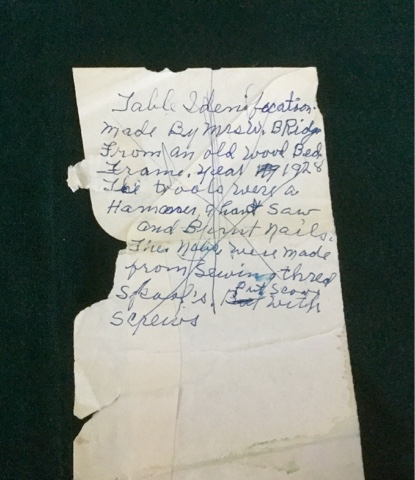 Table Idenification.
made By Mrs W. BRidge
From an old wood Bed
Frame, year 1928
The tools were a
Hammer, hand Saw
and Burnt Nails.
The were made
from Sewing thred
Spool's Put with
Screws